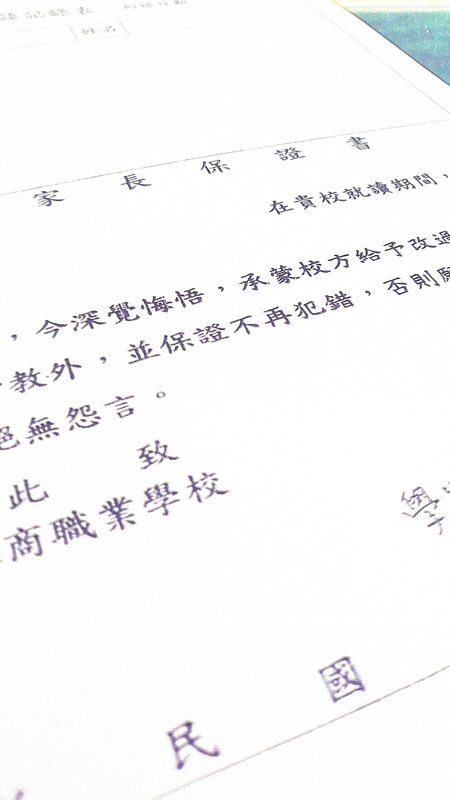 談記錄表 約談日期
姓名
家長保證書
在貴校就讀期間，
，今深覺悔悟，承蒙校方給予改過
教外，並保證不再犯錯，否則願
絕無怨言。
此致
商職業學校
學
民國